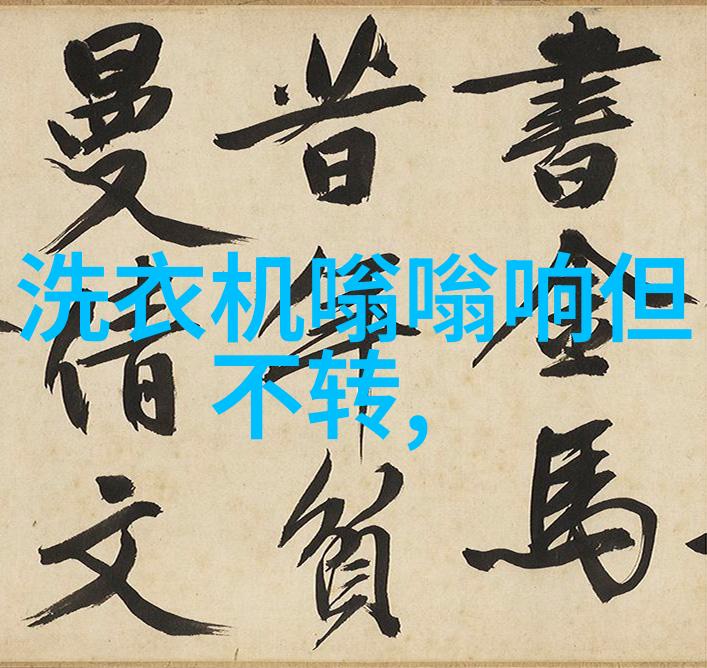 洗衣机嗡嗡响但
不转,
書金馬
昔年負
曼倩文